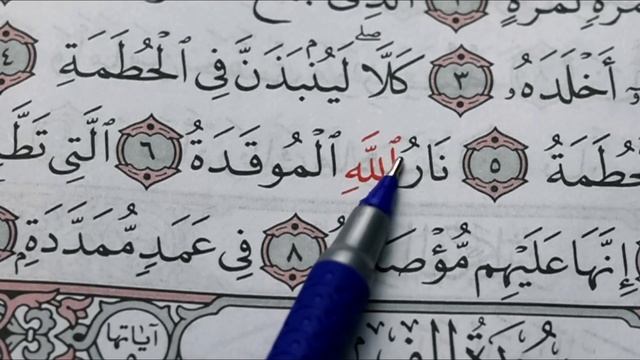 لُّمَزَةٍ ١ ٱلَّذِى
أَخْلَدَهُۥ ٣ كَلَّاۖ لَيُنۢبَذَنَّ فِى ٱلْحُطَمَةِ ٤
ٱلْحُطَمَةُ ٥ نَارُ ٱللَّهِ ٱلْمُوقَدَةُ ٦ ٱلَّتِى
إِنَّهَا عَلَيْهِم ٨ فِى عَمَدٍ مُّمَدَّدَةٍۭ
آياتها